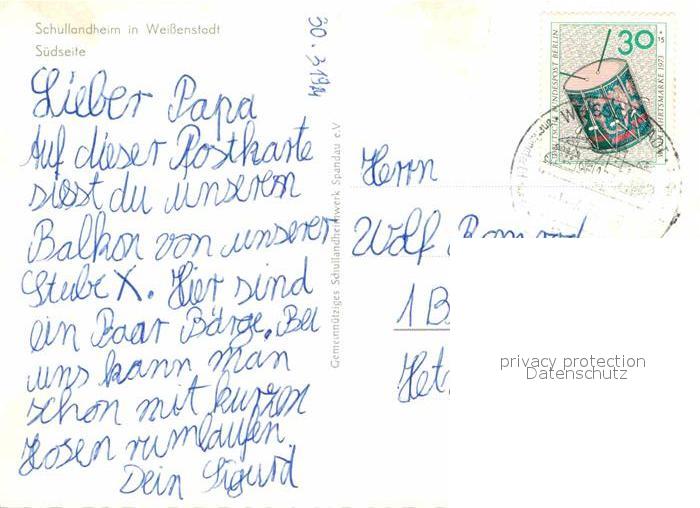 Schullandheim in Weißenstadt
Südseite
30.3.1974
Lieber Papa
Auf dieser Postkarte
siest du unseren
Balkon von unserer
Stube X. Hier sind
ein Paar Bärge. Bei
uns kann man
schon mit kurzen
Hosen rumlaufen.
Dein Sigurd
Gemeinnütziges Schullandheimwerk Spandau e.V
30
+15
DEUTSCHE BUNDESPOST BERLIN
WOHLFAHRTSMARKE 1973
Herrn
Wolf
1 B
Het
privacy protection
Datenschutz